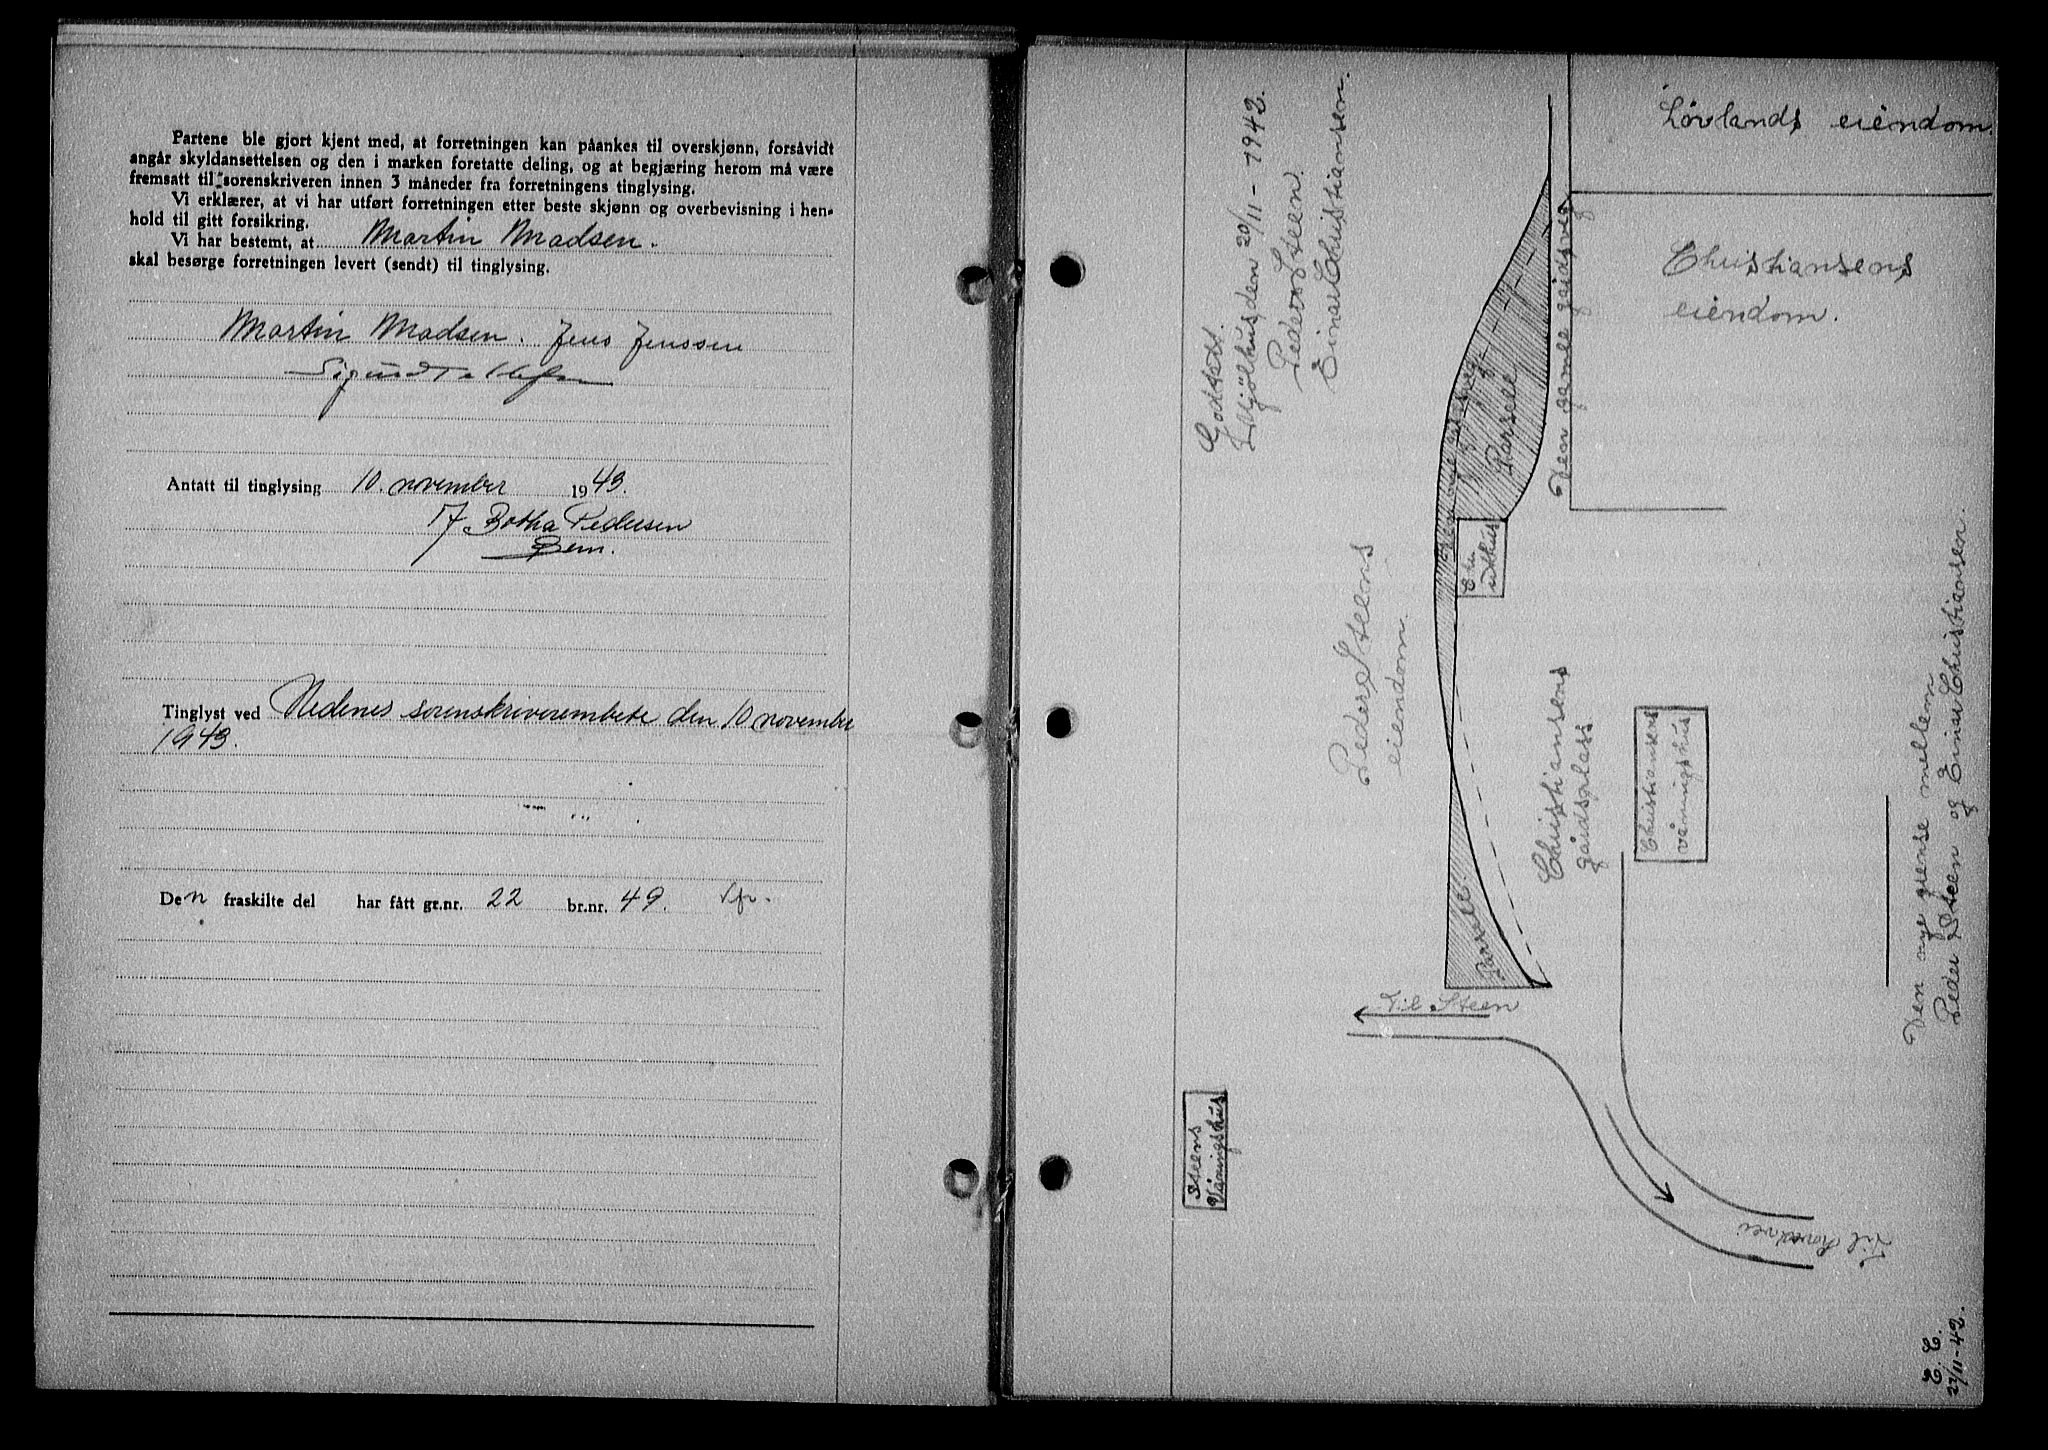 Partene ble gjort kjent med, at forretningen kan påankes til overskjønn, forsåvidt
angår skyldansettelsen og den i marken foretatte deling, og at begjæring herom må være
fremsatt til sorenskriveren innen 3 måneder fra forretningens tinglysing.
Vi erklærer, at vi har utført forretningen etter beste skjønn og overbevisning i hen-
hold til gitt forsikring.
Vi har bestemt, at Martin Madsen.
skal besørge forretningen levert (sendt) til tinglysing.
Martin Madsen. Jens Jenssen
Antatt til tinglysing 10. november 1943.
Botha Pedersen
Tinglyst ved Nedenes sorenskriverembete den 10 november
1943.
Den fraskilte del har fått gr.nr. 22 br.nr. 49.
Godtatt.
Mjölhus den 20/11-1942.
Peder Steen.
Einar Christiansen.
Lövlands eiendom.
Christiansens
eiendom.
Den gamle gårdsveg
Den nye gårdsveg
Parsell
Chr.
uthus
Peder Steens
eiendom.
Christiansens
gårdsplass
Christiansens
våningshus
Parsell
Til Steen
Steens
Våningshus
Til hovedvei
Den nye grense mellem
Peder Steen og Einar Christiansen.
E. C.
22/11-42.